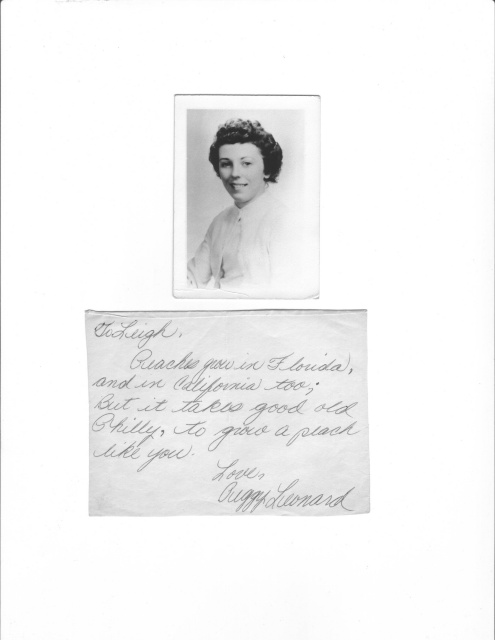 To Leigh,
Peaches grow in Florida,
and in California too;
But it takes good old
Philly, to grow a peach
like you.
Love,
Peggy Leonard